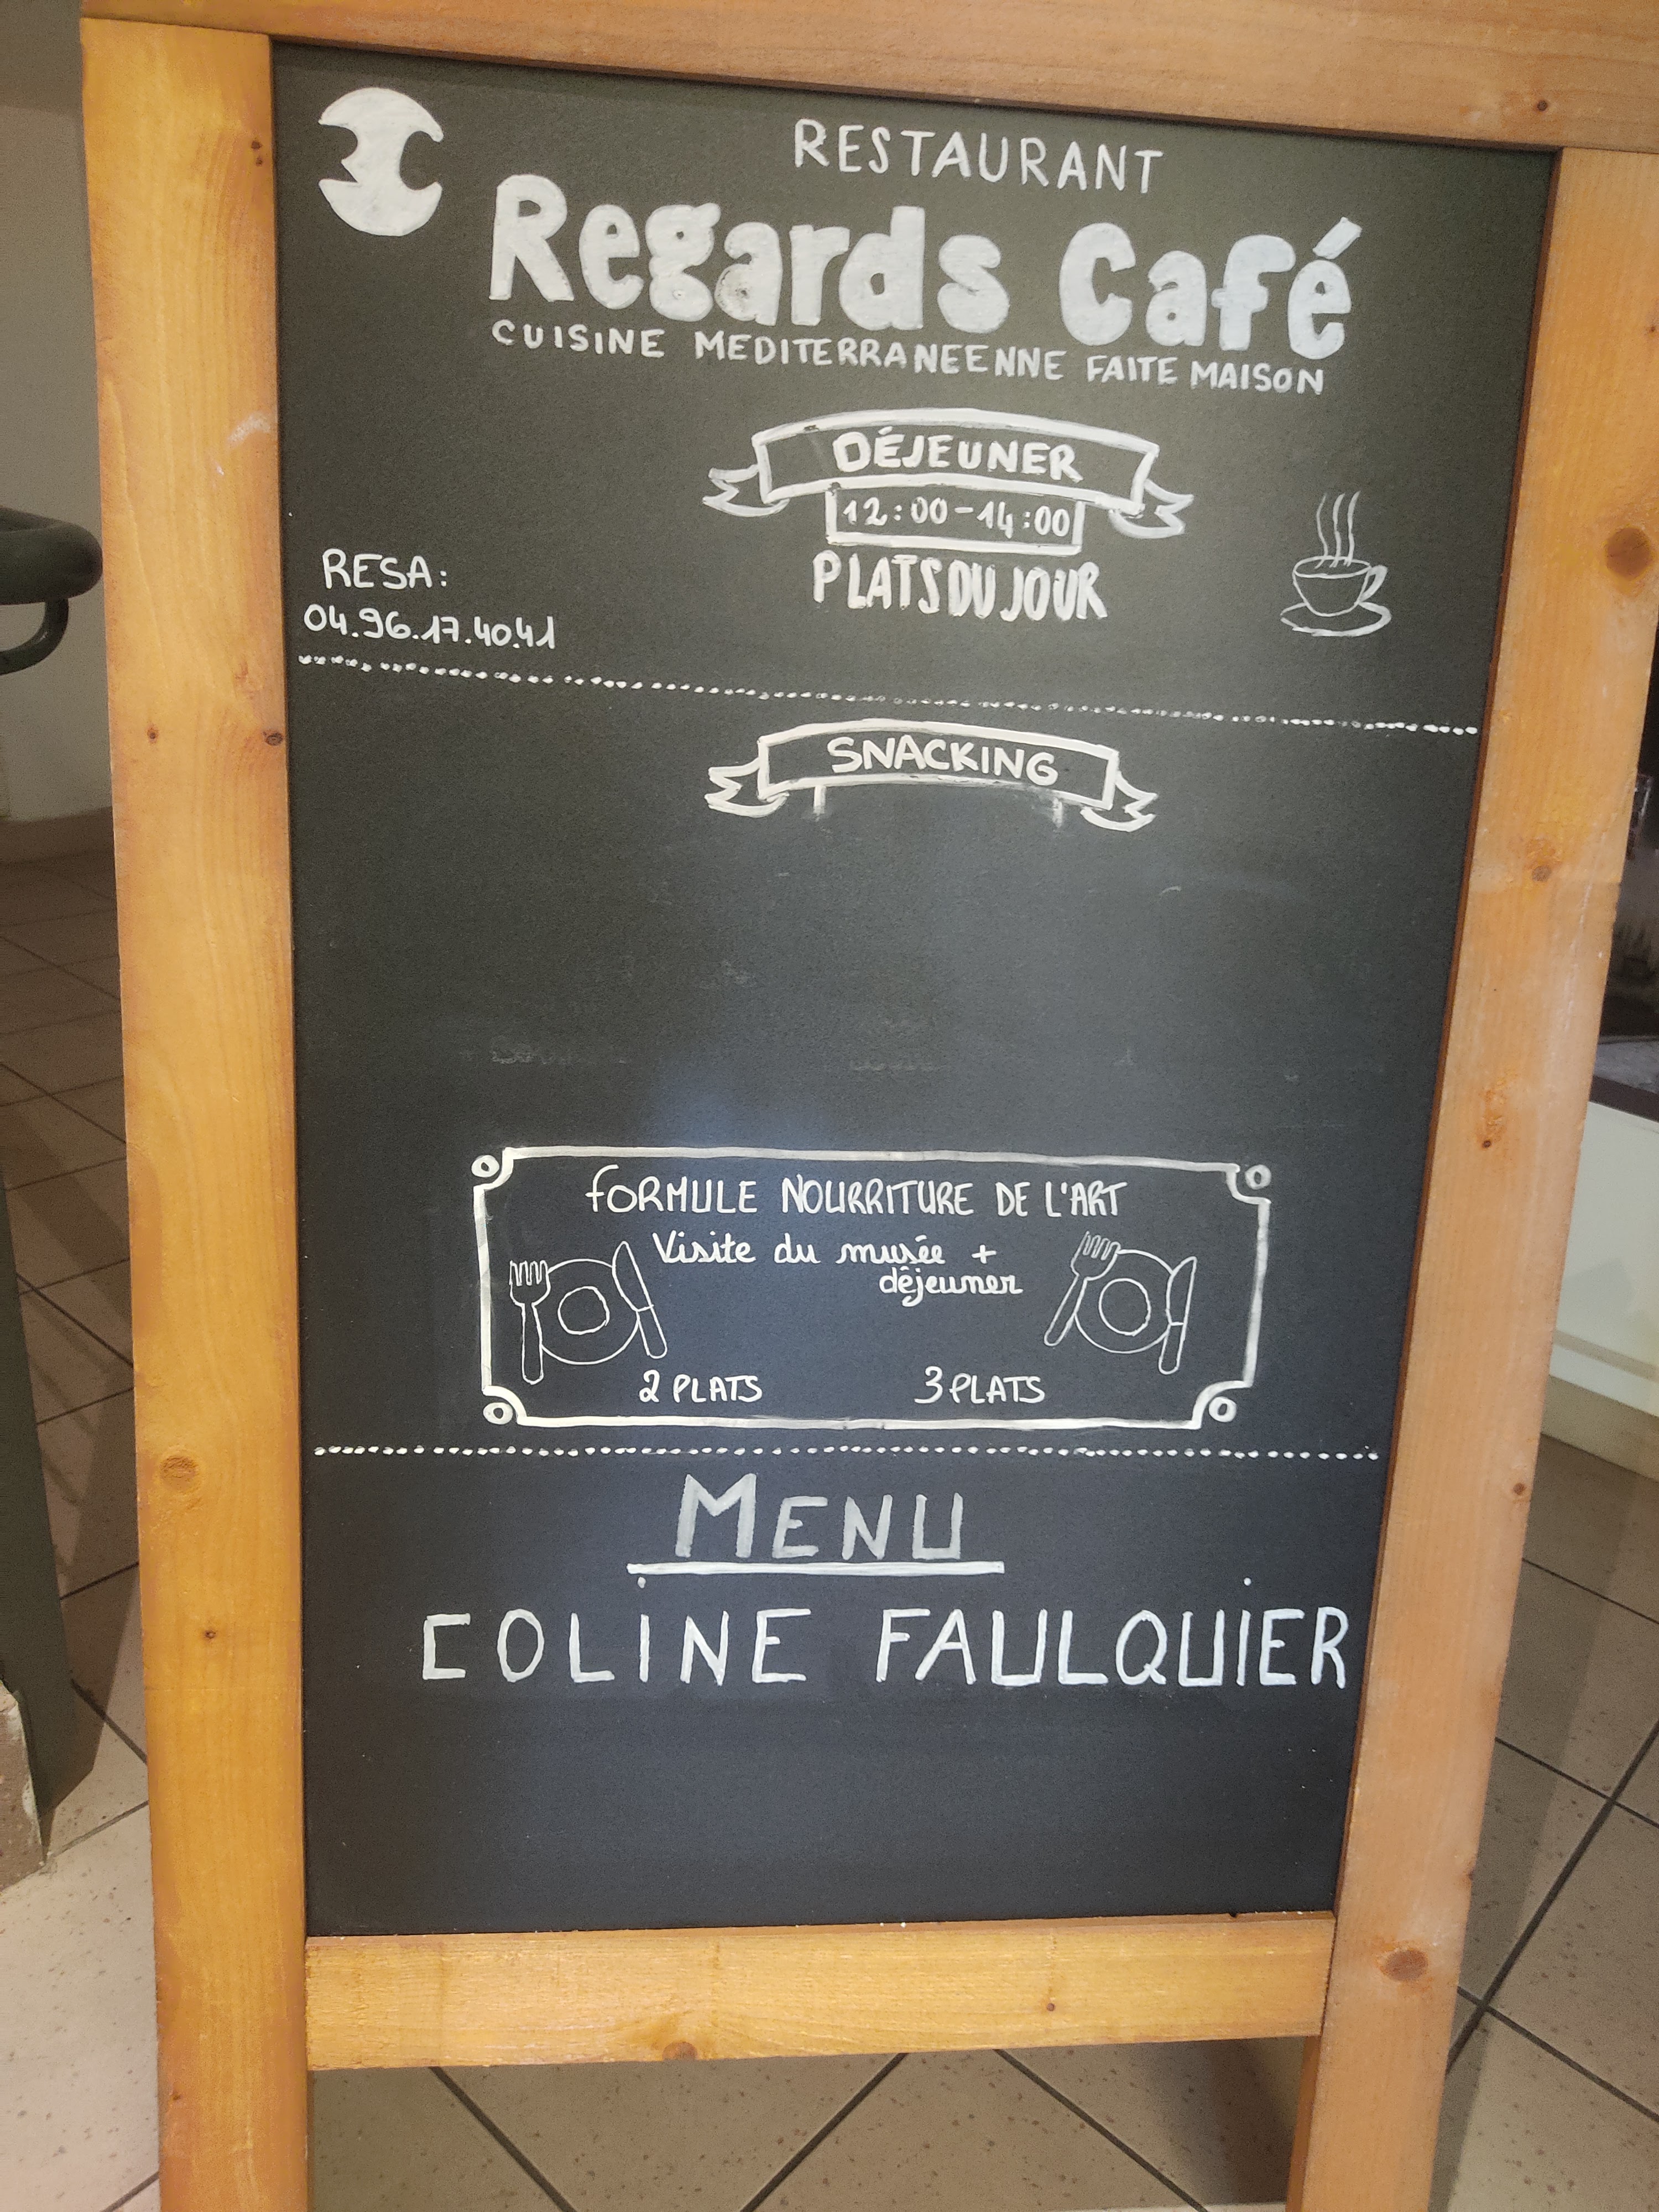 RESTAURANT
Regards Café
CUISINE MEDITERRANEENNE FAITE MAISON
DÉJEUNER
12:00-14:00
PLATS DU JOUR
RESA:
04.96.17.40.41
SNACKING
FORMULE NOURRITURE DE L'ART
Visite du musée +
déjeuner
2 PLATS 3 PLATS
MENU
COLINE FAULQUIER